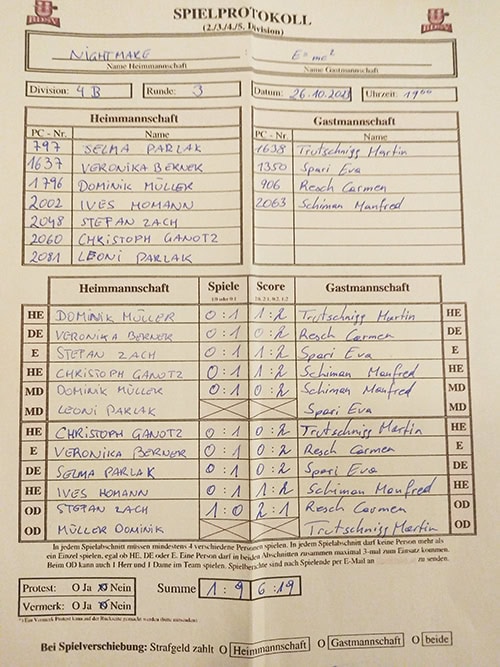 SPIELPROTOKOLL
(2./3./4./5. Division)
NIGHTMARE E=mc²
Name Heimmannschaft Name Gastmannschaft
Division: 4 B Runde: 3 Datum: 26.10.2023 Uhrzeit: 19⁰⁰
Heimmannschaft Gastmannschaft
PC - Nr. Name PC - Nr. Name
797 SELMA PARLAK 1638 Trutschnigg Martin
1637 VERONIKA BERNER 1350 Spari Eva
1796 DOMINIK MÜLLER 906 Resch Carmen
2002 IVES HOMANN 2063 Schiman Manfred
2048 STEFAN ZACH
2060 CHRISTOPH GANOTZ
2081 LEONI PARLAK
Heimmannschaft Spiele Score Gastmannschaft
1:0 oder 0:1 2:0, 2:1, 0:2, 1:2
HE DOMINIK MÜLLER 0:1 1:2 Trutschnigg Martin HE
DE VERONIKA BERNER 0:1 0:2 Resch Carmen DE
E STEFAN ZACH 0:1 1:2 Spari Eva E
HE CHRISTOPH GANOTZ 0:1 1:2 Schiman Manfred HE
MD DOMINIK MÜLLER 0:1 0:2 Schiman Manfred MD
MD LEONI PARLAK Spari Eva MD
HE CHRISTOPH GANOTZ 0:1 0:2 Trutschnigg Martin HE
E VERONIKA BERNER 0:1 0:2 Resch Carmen E
DE SELMA PARLAK 0:1 0:2 Spari Eva DE
HE IVES HOMANN 0:1 1:2 Schiman Manfred HE
OD STEFAN ZACH 1:0 2:1 Resch Carmen OD
OD MÜLLER DOMINIK Trutschnigg Martin OD
In jedem Spielabschnitt müssen mindestens 4 verschiedene Personen spielen. In jedem Spielabschnitt darf keine Person mehr als
ein Einzel spielen, egal ob HE, DE oder E. Eine Person darf in beiden Abschnitten zusammen maximal 3-mal zum Einsatz kommen.
Beim OD kann auch 1 Herr und 1 Dame im Team spielen. Spielberichte sind nach Spielende per E-Mail an zu senden.
Protest: O Ja O Nein Summe 1:9 6:19
Vermerk: O Ja O Nein
Bei Spielverschiebung: Strafgeld zahlt O Heimmannschaft O Gastmannschaft O beide